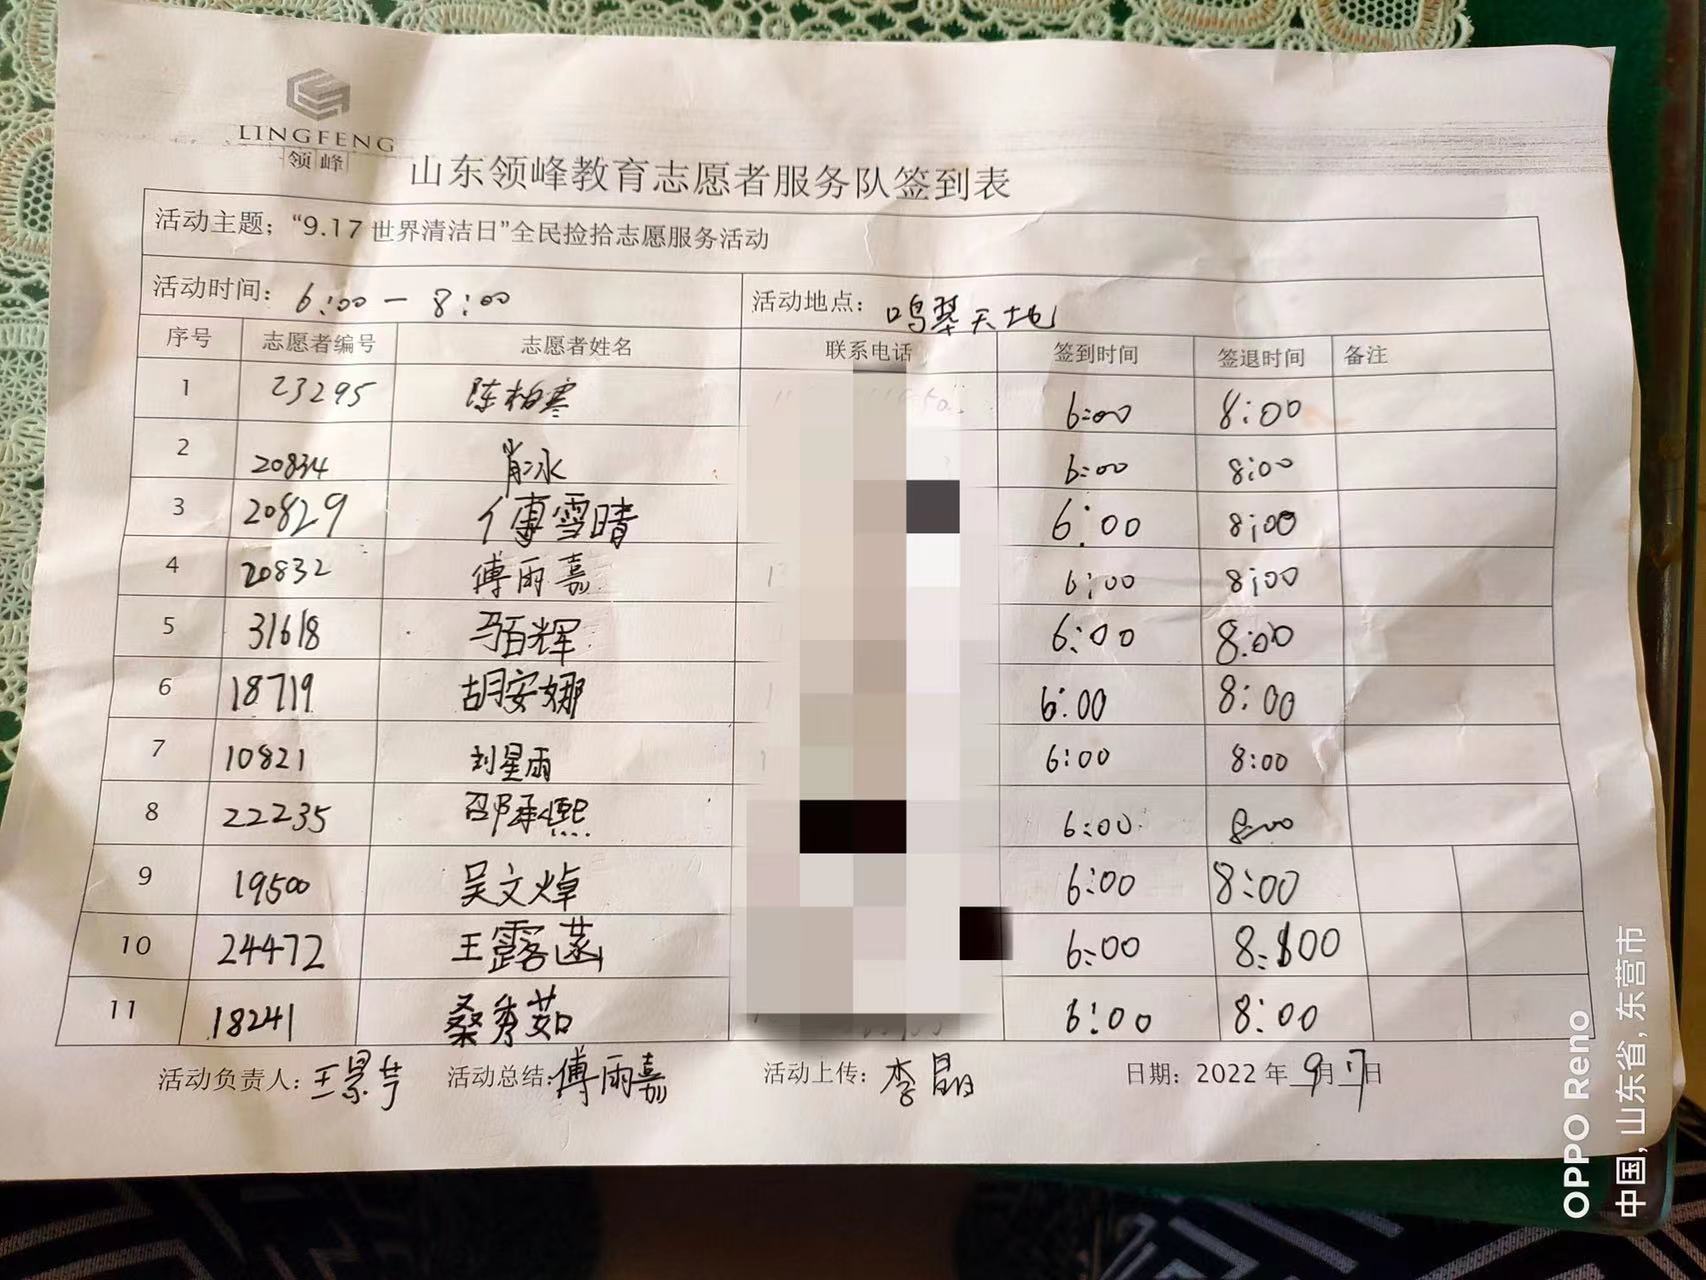 LINGFENG
领峰
山东领峰教育志愿者服务队签到表
活动主题；“9.17世界清洁日”全民捡拾志愿服务活动
活动时间：6:00 — 8:00 活动地点：鸣翠天地
序号 志愿者编号 志愿者姓名 联系电话 签到时间 签退时间 备注
1 23295 陈柏寒 6:00 8:00
2 20834 肖冰 6:00 8:00
3 20829 傅雪晴 6:00 8:00
4 20832 傅雨嘉 6:00 8:00
5 31618 马百辉 6:00 8:00
6 18719 胡安娜 6:00 8:00
7 10821 刘星雨 6:00 8:00
8 22235 邵承熙 6:00 8:00
9 19500 吴文焯 6:00 8:00
10 24472 王露菡 6:00 8:00
11 18241 桑秀茹 6:00 8:00
活动负责人：王景芋 活动总结：傅雨嘉 活动上传：李晶 日期：2022年9月17日
OPPO Reno
中国，山东省，东营市